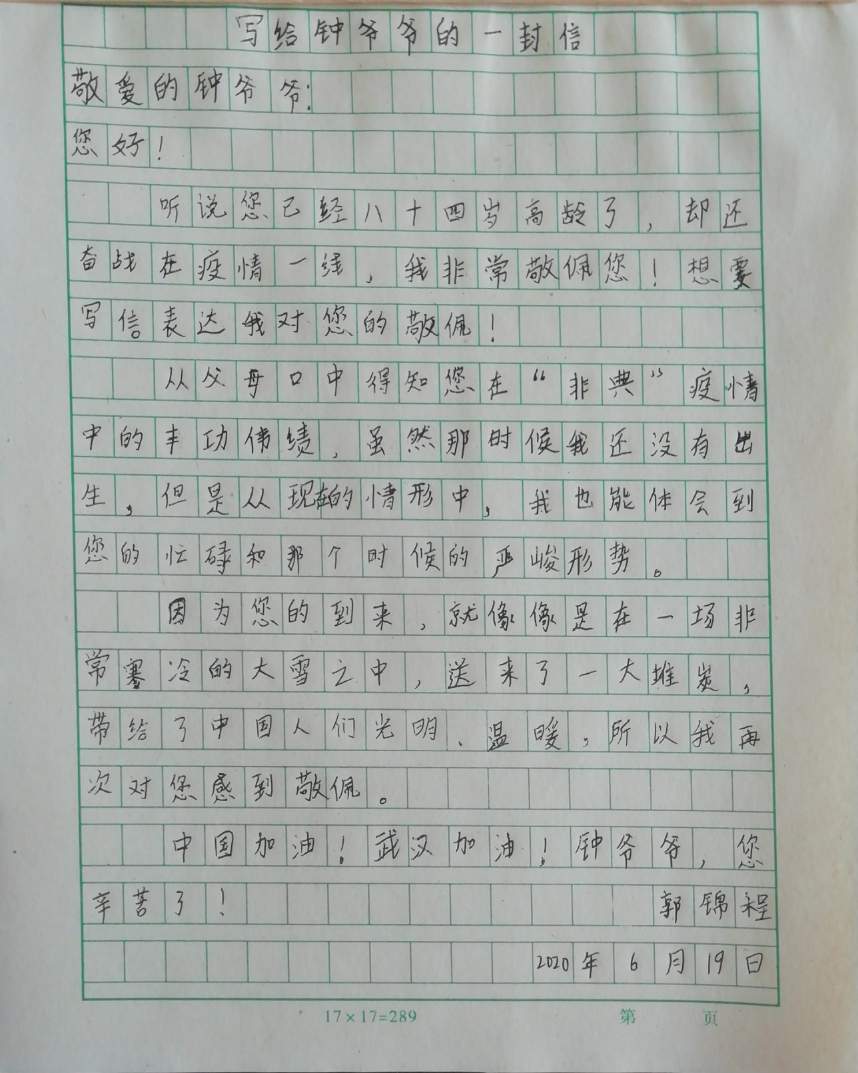 写给钟爷爷的一封信
敬爱的钟爷爷:
您好!
听说您已经八十四岁高龄了,却还
奋战在疫情一线,我非常敬佩您!想要
写信表达我对您的敬佩!
从父母口中得知您在“非典”疫情
中的丰功伟绩,虽然那时候我还没有出
生,但是从现在的情形中,我也能体会到
您的忙碌和那个时候的严峻形势。
因为您的到来,就像像是在一场非
常寒冷的大雪之中,送来了一大堆炭,
带给了中国人们光明、温暖,所以我再
次对您感到敬佩。
中国加油!武汉加油!钟爷爷,您
辛苦了! 郭锦程
2020年6月19日
17×17=289 第 页